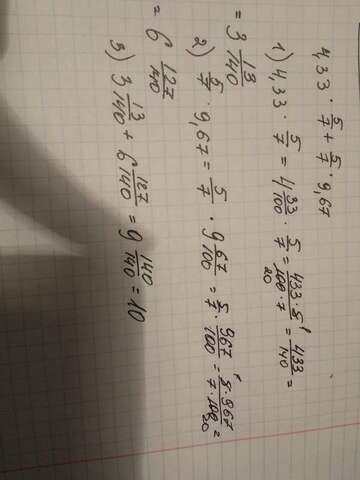 4,33 · 5/7 + 5/7 · 9,67
1) 4,33 · 5/7 = 4 33/100 · 5/7 = 433 · 5 1/100 20 · 7 = 433/140 =
= 3 13/140
2) 5/7 · 9,67 = 5/7 · 9 67/100 = 5/7 · 967/100 = 5 1 · 967/7 · 100 20 =
= 6 127/140
3) 3 13/140 + 6 127/140 = 9 140/140 = 10